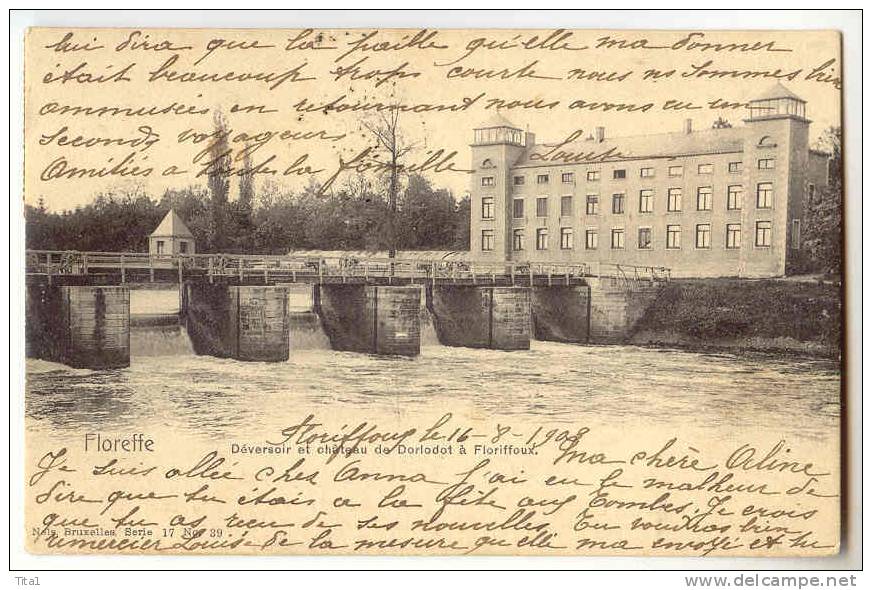 lui dira que la paille qu'elle ma donner
était beaucoup trops courte nous ns sommes bin
ammusées en retournant nous avons eu un
seconds voyageurs
Amitiés a toutes la famille Louise
Floreffe
Déversoir et château de Dorlodot à Floriffoux.
Floriffoux le 16-8-1908
Ma chère Orline
Je suis allée chez Anna j'ai eu le malheur de
dire que tu étais a la fête aux Tombes. Je crois
que tu as reçu de ses nouvelles. Tu voudras bien
Nels, Bruxelles, Serie 17 No 39
remercier Louise de la mesure quelle ma envoyé et tu
Tita1
delcampe.net